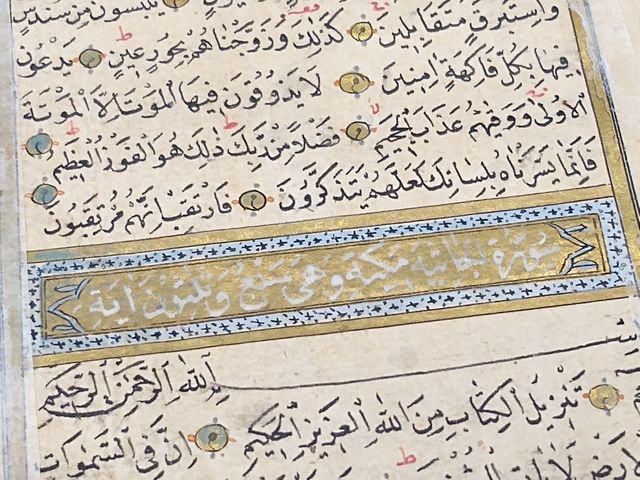 يَلْبَسُونَ مِنْ سُنْدُسٍ
وَاِسْتَبْرَقٍ مُتَقَابِلِينَ كَذٰلِكَ وَزَوَّجْنَاهُمْ بِحُورٍ عِينٍ يَدْعُونَ
فِيهَا بِكُلِّ فَاكِهَةٍ اٰمِنِينَ لَا يَذُوقُونَ فِيهَا الْمَوْتَ اِلَّا الْمَوْتَةَ
الْاُولٰى وَوَقٰيهُمْ عَذَابَ الْجَحِيمِ فَضْلًا مِنْ رَبِّكَ ذٰلِكَ هُوَ الْفَوْزُ الْعَظِيمُ
فَاِنَّمَا يَسَّرْنَاهُ بِلِسَانِكَ لَعَلَّهُمْ يَتَذَكَّرُونَ فَارْتَقِبْ اِنَّهُمْ مُرْتَقِبُونَ
سورة الجاثية مكية وهى سبع وثلثون اية
بِسْمِ اللّٰهِ الرَّحْمٰنِ الرَّحِيمِ
تَنْزِيلُ الْكِتَابِ مِنَ اللّٰهِ الْعَزِيزِ الْحَكِيمِ اِنَّ فِى السَّمٰوَاتِ